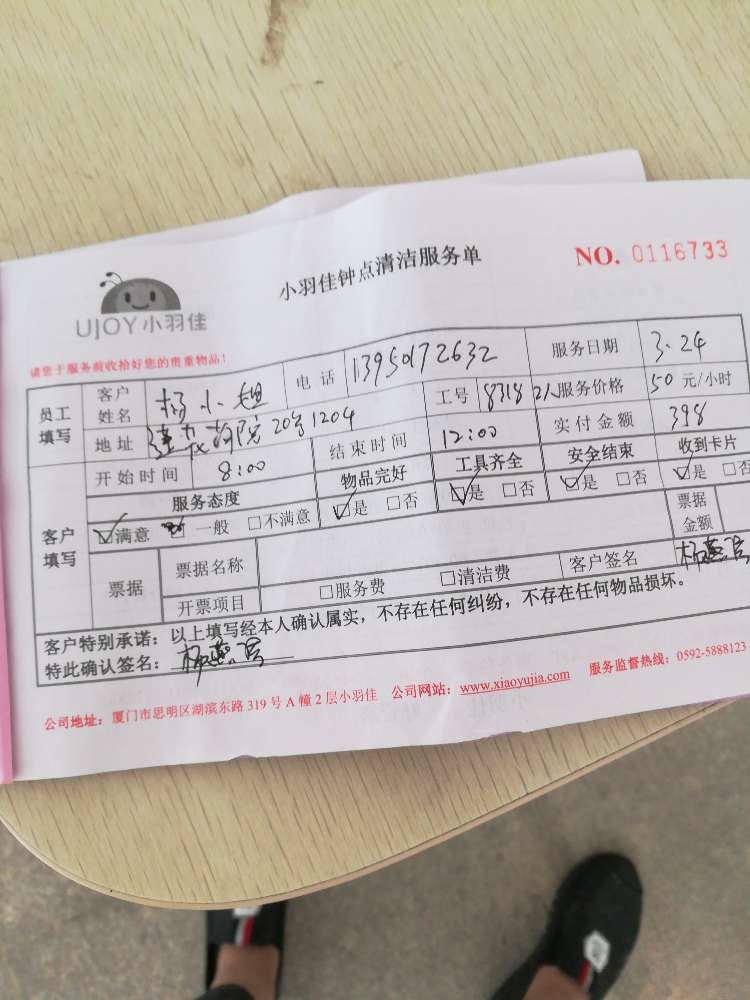 UJOY小羽佳
小羽佳钟点清洁服务单
NO. 0116733
请您于服务前收拾好您的贵重物品!
员工填写
客户姓名 杨小姐 电话 13950172632 服务日期 3.24
地址 20号1204 工号 8318 2人 服务价格 50 元/小时
客户填写
开始时间 8:00 结束时间 12:00 实付金额 398
服务态度 物品完好 工具齐全 安全结束 收到卡片
☑满意 一般 □不满意 ☑是 □否 ☑是 □否 ☑是 □否 ☑是 □否
票据 票据名称 票据金额
开票项目 □服务费 □清洁费 客户签名
客户特别承诺:以上填写经本人确认属实,不存在任何纠纷,不存在任何物品损坏。
特此确认签名:
公司地址:厦门市思明区湖滨东路 319 号 A 幢 2 层小羽佳 公司网站:www.xiaoyujia.com 服务监督热线:0592-5888123